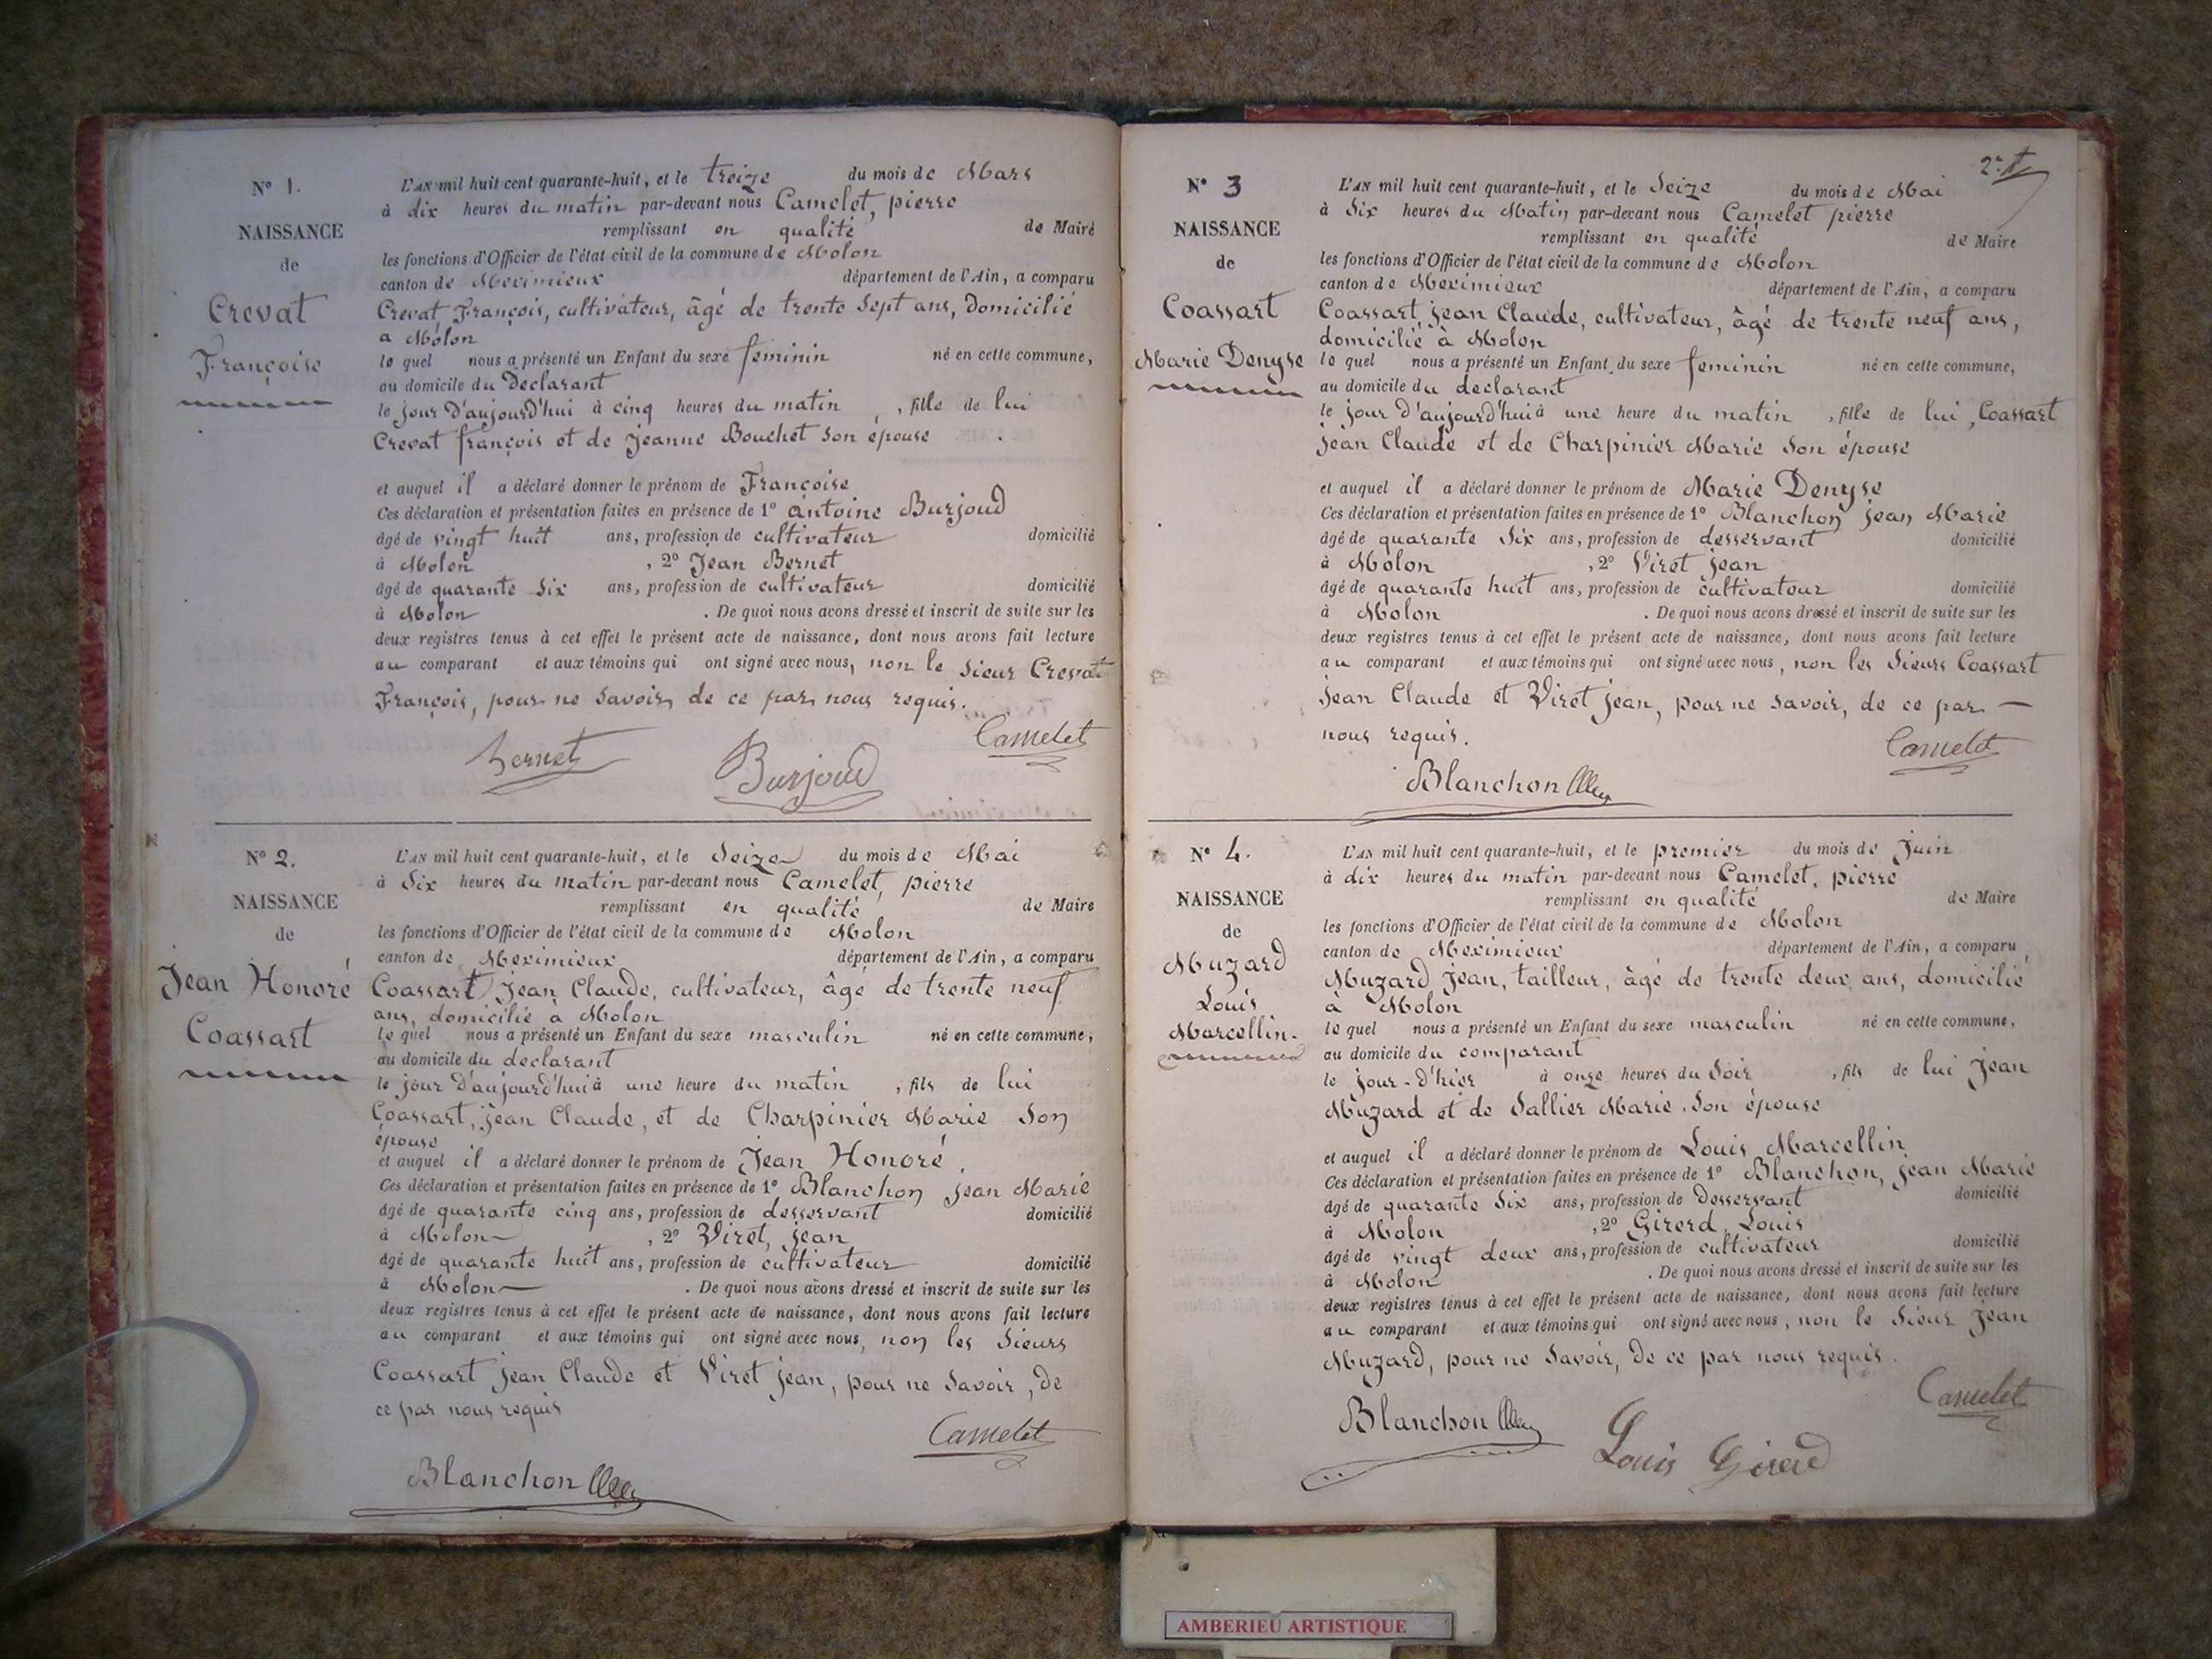 N° 1.
NAISSANCE
de
Crevat
Françoise
L'AN mil huit cent quarante-huit, et le treize du mois de Mars
à dix heures du matin par-devant nous Camelet, pierre
remplissant en qualité de Maire
les fonctions d'Officier de l'état civil de la commune de Molon
canton de Meximieux département de l'Ain, a comparu
Crevat François, cultivateur, âgé de trente Sept ans, Domicilié
a Molon
le quel nous a présenté un Enfant du sexe feminin né en cette commune,
au domicile du Déclarant
le jour D'aujourd'hui à cinq heures du matin , fille de lui
Crevat françois et de jeanne Bouchet Son épouse
et auquel il a déclaré donner le prénom de Françoise
Ces déclaration et présentation faites en présence de 1° antoine Burjoud
âgé de vingt huit ans, profession de cultivateur domicilié
à Molon , 2° Jean Bernet
âgé de quarante Six ans, profession de cultivateur domicilié
à Molon . De quoi nous avons dressé et inscrit de suite sur les
deux registres tenus à cet effet le présent acte de naissance, dont nous avons fait lecture
au comparant et aux témoins qui ont signé avec nous, non le Sieur Crevat
François, pour ne Savoir, de ce par nous requis.
Bernet Burjoud Camelet
N° 2.
NAISSANCE
de
Jean Honoré
Coassart
L'AN mil huit cent quarante-huit, et le Seize du mois de Mai
à Six heures du Matin par-devant nous Camelet, pierre
remplissant en qualité de Maire
les fonctions d'Officier de l'état civil de la commune de Molon
canton de Meximieux département de l'Ain, a comparu
Coassart jean Claude, cultivateur, âgé de trente neuf
ans, domicilié à Molon
le quel nous a présenté un Enfant du sexe masculin né en cette commune,
au domicile du declarant
le jour D'aujourd'hui à une heure du matin , fils de lui
Coassart, jean Claude, et de Charpinier Marie Son
épouse
et auquel il a déclaré donner le prénom de Jean Honoré.
Ces déclaration et présentation faites en présence de 1° Blanchon jean Marie
âgé de quarante cinq ans, profession de desservant domicilié
à Molon , 2° Viret, jean
âgé de quarante huit ans, profession de cultivateur domicilié
à Molon . De quoi nous avons dressé et inscrit de suite sur les
deux registres tenus à cet effet le présent acte de naissance, dont nous avons fait lecture
au comparant et aux témoins qui ont signé avec nous, non les Sieurs
Coassart jean Claude et Viret jean, pour ne Savoir, de
ce par nous requis
Camelet
Blanchon
2e
N° 3
NAISSANCE
de
Coassart
Marie Denyse
L'AN mil huit cent quarante-huit, et le Seize du mois de Mai
à Six heures du Matin par-devant nous Camelet pierre
remplissant en qualité de Maire
les fonctions d'Officier de l'état civil de la commune de Molon
canton de Meximieux département de l'Ain, a comparu
Coassart jean Claude, cultivateur, âgé de trente neuf ans,
domicilié à Molon
le quel nous a présenté un Enfant du sexe feminin né en cette commune,
au domicile du declarant
le jour D'aujourd'hui à une heure du matin , fille de lui, Coassart
jean Claude et de Charpinier Marie Son épouse
et auquel il a déclaré donner le prénom de Marie Denyse
Ces déclaration et présentation faites en présence de 1° Blanchon jean Marie
âgé de quarante Six ans, profession de desservant domicilié
à Molon , 2° Viret jean
âgé de quarante huit ans, profession de cultivateur domicilié
à Molon . De quoi nous avons dressé et inscrit de suite sur les
deux registres tenus à cet effet le présent acte de naissance, dont nous avons fait lecture
au comparant et aux témoins qui ont signé avec nous, non les Sieurs Coassart
jean Claude et Viret jean, pour ne Savoir, de ce par —
nous requis.
Camelet
Blanchon
N° 4.
NAISSANCE
de
Muzard
Louis
Marcellin.
L'AN mil huit cent quarante-huit, et le premier du mois de Juin
à dix heures du matin par-devant nous Camelet, pierre
remplissant en qualité de Maire
les fonctions d'Officier de l'état civil de la commune de Molon
canton de Meximieux département de l'Ain, a comparu
Muzard Jean, tailleur, âgé de trente deux ans, domicilié
à Molon
le quel nous a présenté un Enfant du sexe masculin né en cette commune,
au domicile du comparant
le jour-d'hier à onze heures du Soir , fils de lui Jean
Muzard et de Sallier Marie. Son épouse
et auquel il a déclaré donner le prénom de Louis Marcellin
Ces déclaration et présentation faites en présence de 1° Blanchon, jean Marie
âgé de quarante Six ans, profession de Desservant domicilié
à Molon , 2° Girerd, Louis
âgé de vingt deux ans, profession de cultivateur domicilié
à Molon . De quoi nous avons dressé et inscrit de suite sur les
deux registres tenus à cet effet le présent acte de naissance, dont nous avons fait lecture
au comparant et aux témoins qui ont signé avec nous, non le Sieur Jean
Muzard, pour ne Savoir, De ce par nous requis.
Camelet
Blanchon
Louis Girerd
AMBERIEU ARTISTIQUE